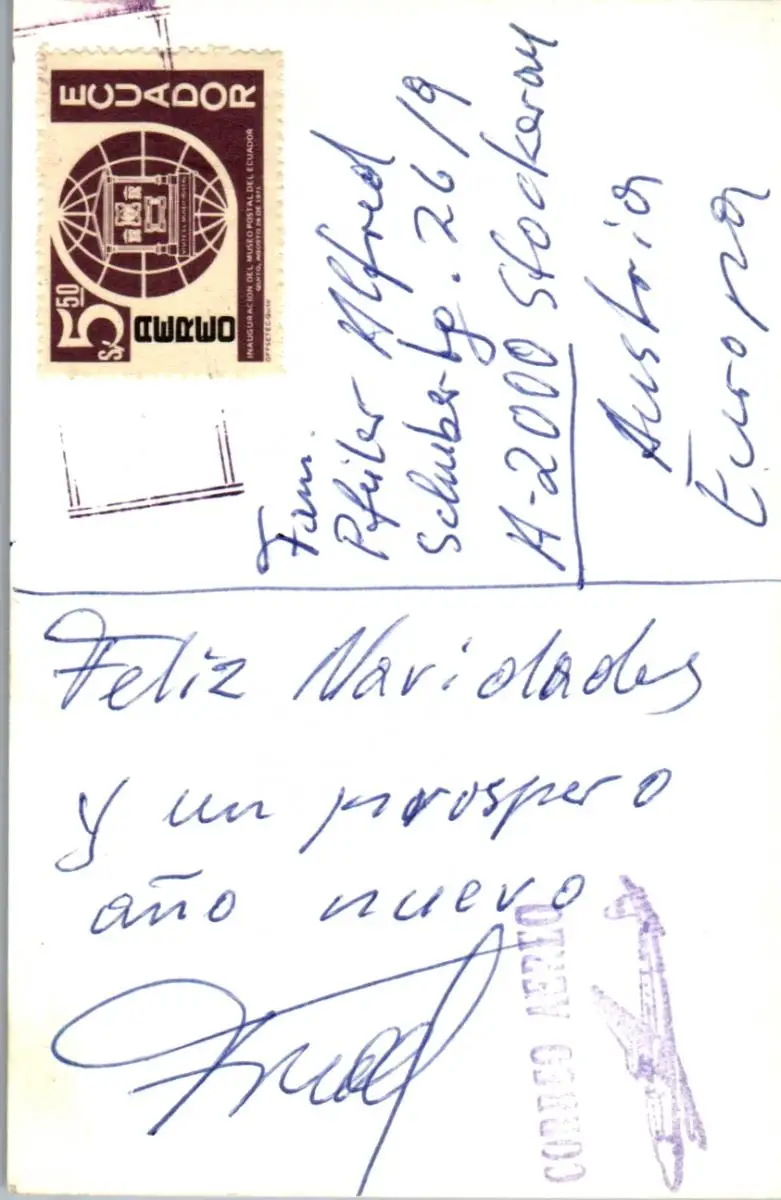 ECUADOR
S/ 5.50
AEREO
INAUGURACION DEL MUSEO POSTAL DEL ECUADOR
QUITO, AGOSTO 24 DE 1971
OFFSETEC-QUITO
Fam.
Alfred
Schubertg. 26/9
A-2000 Stockerau
Austria
Europa
Feliz Navidades
y un prospero
año nuevo
CORREO AEREO